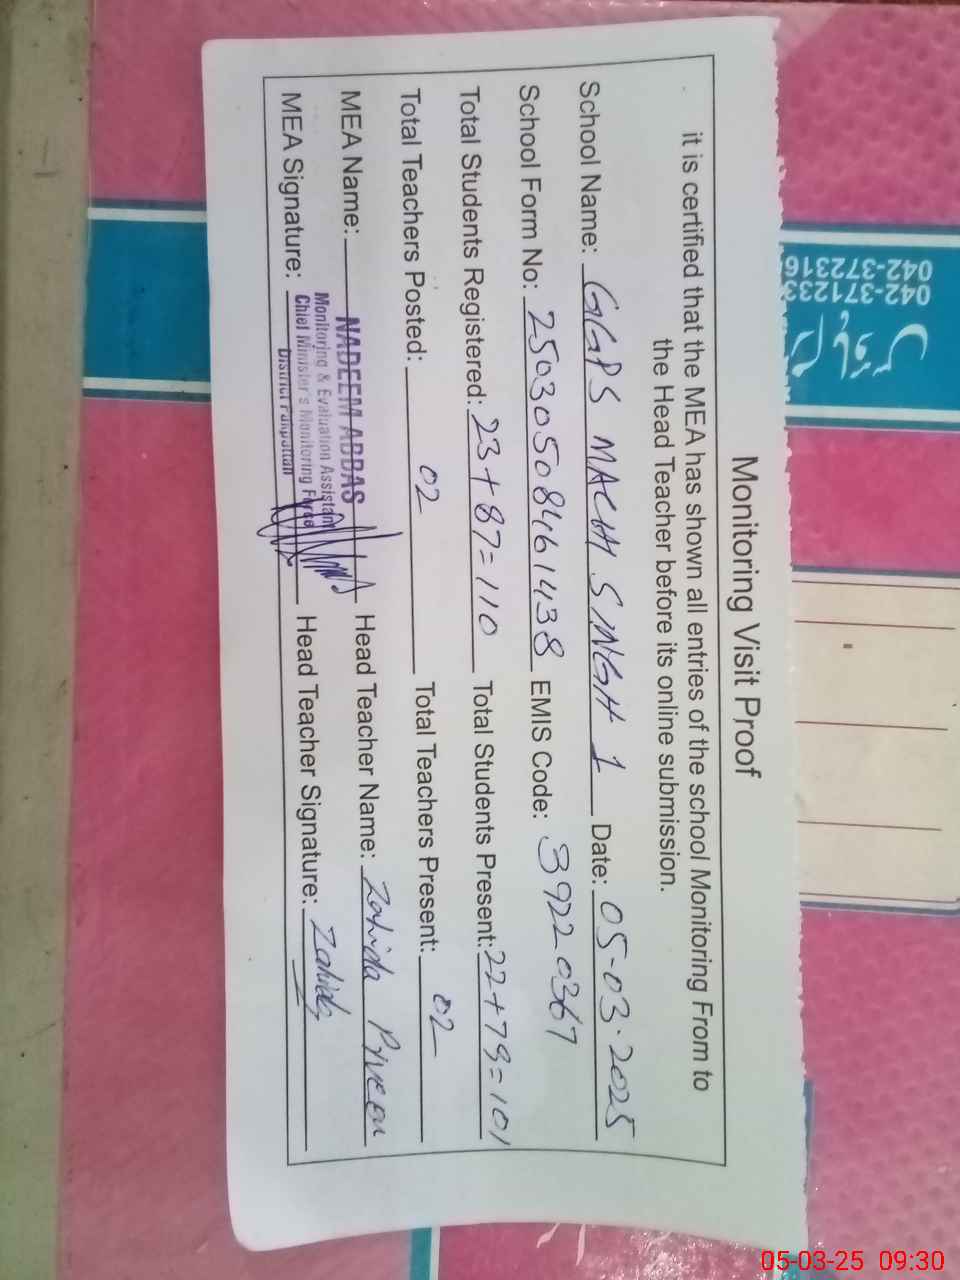 Monitoring Visit Proof
it is certified that the MEA has shown all entries of the school Monitoring From to
the Head Teacher before its online submission.
School Name: GGPS MACHH SINGH 1 Date: 05-03-2025
School Form No: 25030508461438 EMIS Code: 39220367
Total Students Registered: 23+87=110 Total Students Present: 22+79=101
Total Teachers Posted: 02 Total Teachers Present: 02
MEA Name: NADEEM ABBAS Head Teacher Name: Zahida Prveen
Monitoring & Evaluation Assistant
Chief Minister's Monitoring Force
District Pakpattan
MEA Signature: Head Teacher Signature: Zahida
042-372316
042-371233
05-03-25 09:30